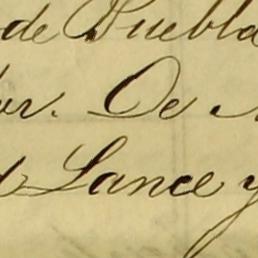 de Puebla
or. De
Lance y